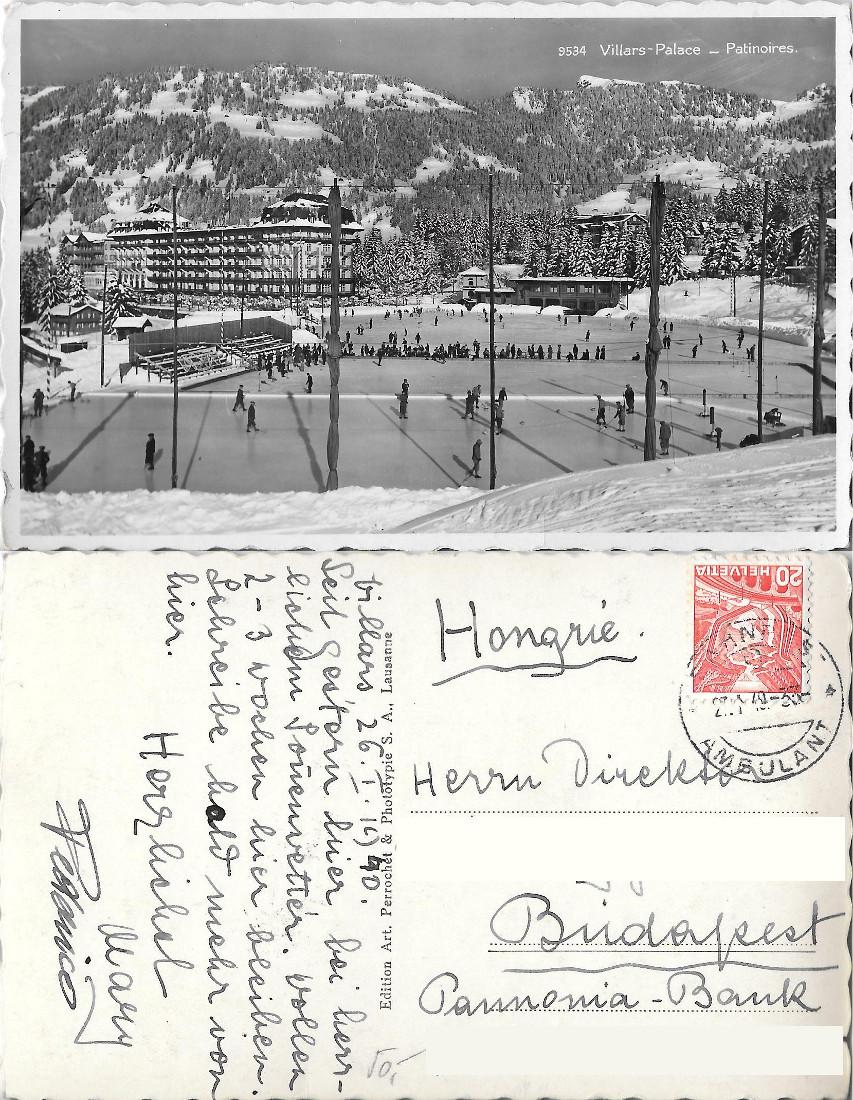 9534 Villars-Palace – Patinoires.
Villars 26. I. 1940.
Seit gestern hier bei herr-
lichem Sonnenwetter. Wollen
2-3 Wochen hier bleiben.
Schreibe bald mehr von
hier.
Herzlichst
Mary
Edition Art. Perrochet & Phototypie S. A., Lausanne
HELVETIA
20
AMBULANT
Hongrie.
Herrn Direktor
Budapest
Pannonia-Bank